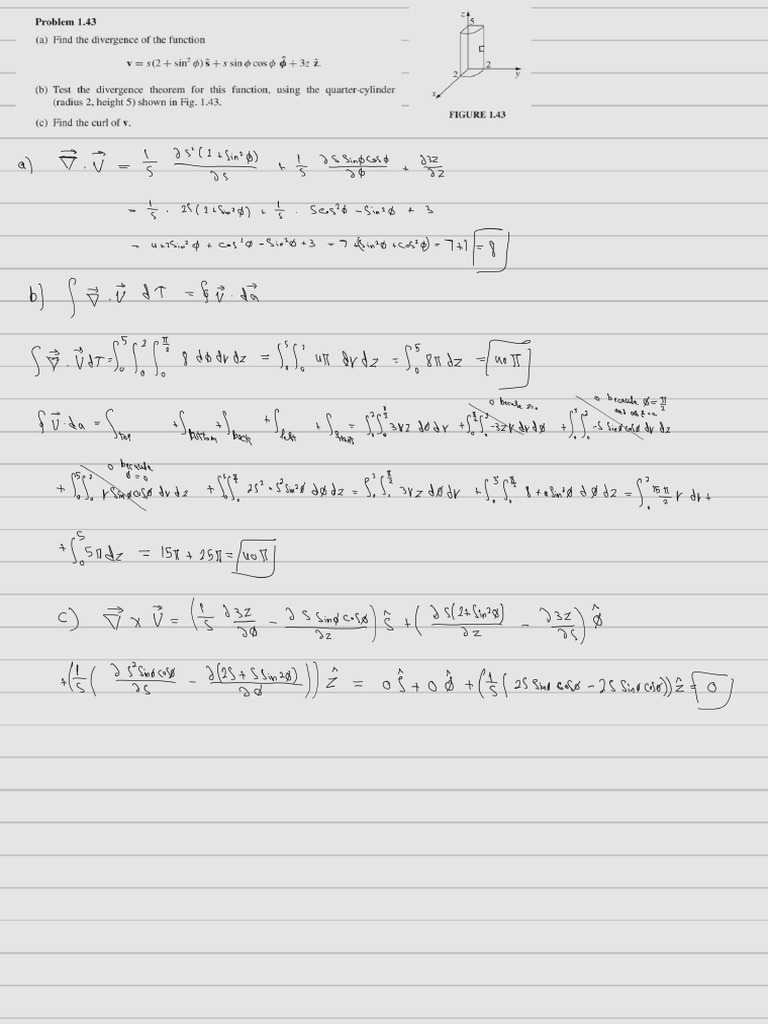 Problem 1.43
(a) Find the divergence of the function
v = s(2 + sin² ϕ) ŝ + s sin ϕ cos ϕ ϕ̂ + 3z ẑ.
(b) Test the divergence theorem for this function, using the quarter-cylinder
(radius 2, height 5) shown in Fig. 1.43.
(c) Find the curl of v.
z
5
2
2
y
x
FIGURE 1.43
a) ∇⃗ · V⃗ = 1/S ∂S²(2+Sin²ϕ)/∂S + 1/S ∂S Sinϕcosϕ/∂ϕ + ∂3z/∂z
= 1/S · 2S(2+Sin²ϕ) + 1/S · S cos²ϕ - Sin²ϕ + 3
= 4+2Sin²ϕ + cos²ϕ - Sin²ϕ + 3 = 7 + (Sin²ϕ + cos²ϕ) = 7+1 = 8
b) ∫ ∇⃗ · V⃗ dτ = ∮ V⃗ · da⃗
∫ ∇⃗ · V⃗ dτ = ∫₀⁵ ∫₀² ∫₀^(π/2) 8 dϕ dr dz = ∫₀⁵ ∫₀² 4π dr dz = ∫₀⁵ 8π dz = 40π
0 because z=0
0 because ϕ = π/2
∮ V⃗ · da = ∫top + ∫bottom + ∫back + ∫left + ∫front = ∫₀² ∫₀^(π/2) 3rz dϕ dr + ∫₀^(π/2) ∫₀² -3zr dr dϕ + ∫₀⁵ ∫₀² -S sinϕ cosϕ dr dz
0 because ϕ=0
+ ∫₀⁵ ∫₀² r Sinϕ cosϕ dr dz + ∫₀⁵ ∫₀^(π/2) 2S² + S² Sin²ϕ dϕ dz = ∫₀² ∫₀^(π/2) 3rz dϕ dr + ∫₀⁵ ∫₀^(π/2) 8 + 4 Sin²ϕ dϕ dz = ∫₀² 15π/2 r dr +
+ ∫₀⁵ 5π dz = 15π + 25π = 40π
c) ∇⃗ × V⃗ = (1/S ∂3z/∂ϕ - ∂S Sinϕ cosϕ/∂z) ŝ + (∂S(2+Sin²ϕ)/∂z - ∂3z/∂S) ϕ̂
+ (1/S (∂S² Sinϕ cosϕ/∂S - ∂(2S + S Sin²ϕ)/∂ϕ)) ẑ = 0 ŝ + 0 ϕ̂ + (1/S (2S Sinϕ cosϕ - 2S Sinϕ cosϕ)) ẑ = 0